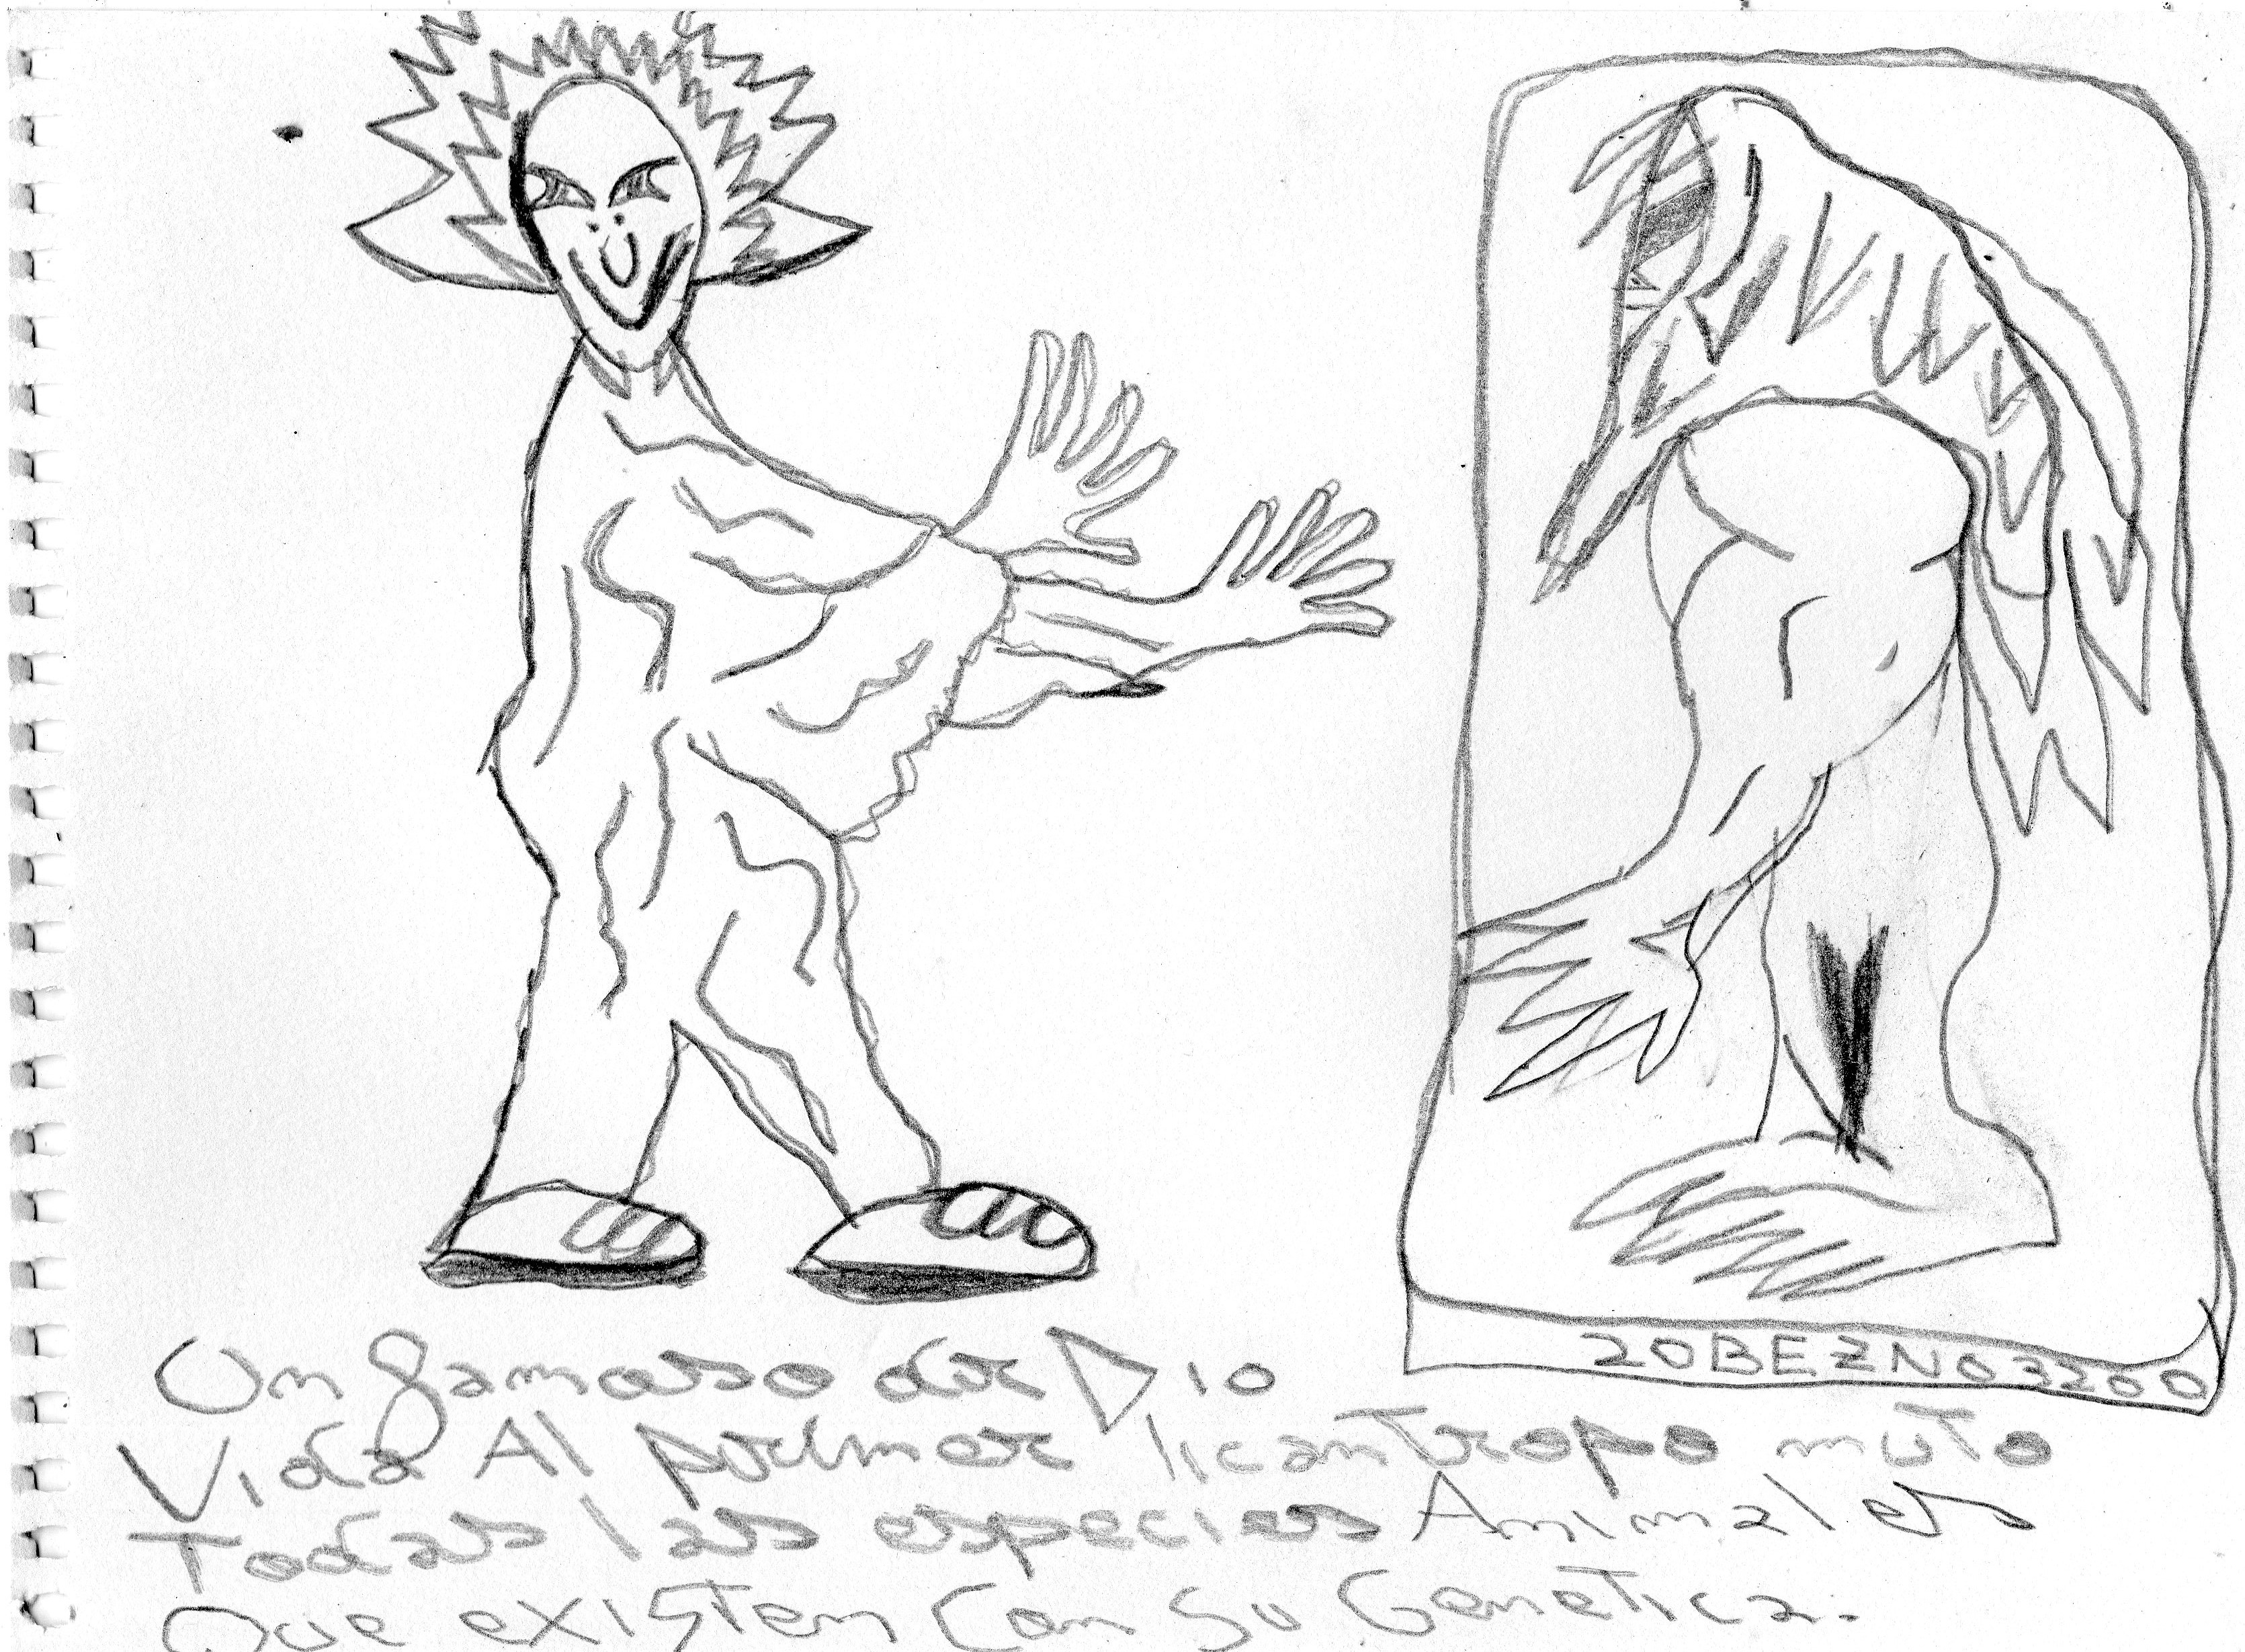 20BEZNO3200
Un famoso de Dio
Vida Al primer licantropo muto
Todas las especies Animales
Que existen Con Su Genetica.